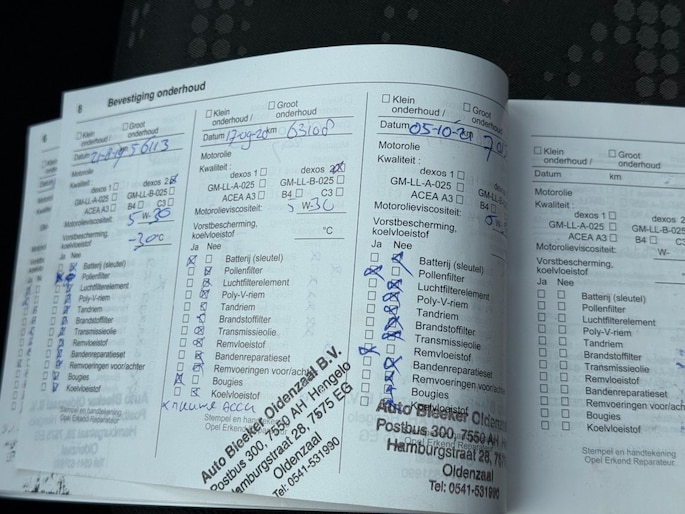 8 Bevestiging onderhoud
☐ Klein onderhoud / ☐ Groot onderhoud
Datum 56113
Motorolie
Kwaliteit:
dexos 1 ☐ dexos 2
GM-LL-A-025 ☐ GM-LL-B-025 ☐
ACEA A3 ☐ B4 ☐ C3 ☐
Motorolieviscositeit:
5 W-30
Vorstbescherming, koelvloeistof
-30c
Ja Nee
Batterij (sleutel)
Pollenfilter
Luchtfilterelement
Poly-V-riem
Tandriem
Brandstoffilter
Transmissieolie
Remvloeistof
Bandenreparatieset
Remvoeringen voor/achter
Bougies
Koelvloeistof
Stempel en handtekening
Opel Erkend Reparateur
☐ Klein onderhoud / ☐ Groot onderhoud
Datum 17-09-20 km 63108
Motorolie
Kwaliteit :
dexos 1 ☐ dexos 2
GM-LL-A-025 ☐ GM-LL-B-025 ☐
ACEA A3 ☐ B4 ☐ C3 ☐
Motorolieviscositeit:
5 W-30
Vorstbescherming, koelvloeistof
°C
Ja Nee
Batterij (sleutel)
Pollenfilter
Luchtfilterelement
Poly-V-riem
Tandriem
Brandstoffilter
Transmissieolie
Remvloeistof
Bandenreparatieset
Remvoeringen voor/achter
Bougies
Koelvloeistof
x nieuwe accu
Stempel en handtekening
Opel Erkend Reparateur
Auto Bleeker Oldenzaal B.V.
Postbus 300, 7550 AH Hengelo
Hamburgstraat 28, 7575 EG
Oldenzaal
Tel: 0541-531990
☐ Klein onderhoud / ☐ Groot onderhoud
Datum 05-10-21
Motorolie
Kwaliteit :
dexos 1 ☐
GM-LL-A-025 ☐ GM-LL-B
ACEA A3 ☐ B4 ☐
Motorolieviscositeit:
W-
Vorstbescherming, koelvloeistof
Ja Nee
Batterij (sleutel)
Pollenfilter
Luchtfilterelement
Poly-V-riem
Tandriem
Brandstoffilter
Transmissieolie
Remvloeistof
Bandenreparatieset
Remvoeringen voor/ac
Bougies
Koelvloeistof
Opel Erkend Reparateur
Auto Bleeker Oldenz
Postbus 300, 7550 AH
Hamburgstraat 28, 757
Oldenzaal
Tel: 0541-531990
☐ Klein onderhoud / ☐ Groot onderhoud
Datum km
Motorolie
Kwaliteit :
dexos 1 ☐ dexos 2
GM-LL-A-025 ☐ GM-LL-B-025
ACEA A3 ☐ B4 ☐ C3
Motorolieviscositeit:
W-
Vorstbescherming, koelvloeistof
Ja Nee
☐ ☐ Batterij (sleutel)
☐ ☐ Pollenfilter
☐ ☐ Luchtfilterelement
☐ ☐ Poly-V-riem
☐ ☐ Tandriem
☐ ☐ Brandstoffilter
☐ ☐ Transmissieolie
☐ ☐ Remvloeistof
☐ ☐ Bandenreparatieset
☐ ☐ Remvoeringen voor/ach
☐ ☐ Bougies
☐ ☐ Koelvloeistof
Stempel en handtekening
Opel Erkend Reparateur